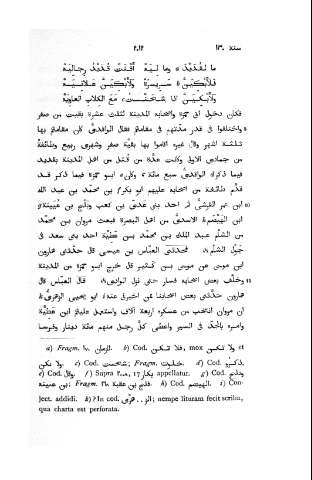 سنة ١٣٠ ٢٠١٢
ما لقديد وما ليه أفنت قديد رجاليه
فلأبكين سريرة ولأبكين علانيه
ولأبكين اذا مع الكلاب العاويه
فكان دخول ابى حمزة واصحابه المدينة لثلث عشرة بقيت من صفر
واختلفوا فى قدر مدتهم فى مقامهم فقال الواقدى كان مقامهم بها
ثلثة اشهر وقال غيره اقاموا بها بقية صفر وشهرى ربيع وطائفة
من جمادى الاولى وكانت عدة من قتل من اهل المدينة بقديد
فيما ذكر الواقدى سبع مائة، وكان ابو حمزة فيما ذكر قد
قدم طائفة من اصحابه عليهم ابو بكر بن محمد بن عبد الله
ابن عمر القرشى ثم احد بنى عدى بن كعب وبلج بن عيينة
ابن الهيصم الاسدى من اهل البصرة فبعث مروان بن محمد
من الشام عبد الملك بن محمد بن عطية احد بنى سعد فى
خيول الشام، فحدثنى العباس بن عيسى قال حدثنى هارون
ابن موسى عن موسى بن كثير قال خرج ابو حمزة من المدينة
وخلف بعض اصحابه فسار حتى نزل الوادى، قال العباس قال
هارون حدثنى بعض اصحابنا ممن اخبرنى عنه ابو يحيى الزهرى
ان مروان انتخب من عسكره اربعة آلاف واستعمل عليهم ابن عطية
وامره بالجد فى السير واعطى كل رجل منهم مائة دينار وفرسا
a) Fragm. الزمان. b) Cod. فلا تبكين, mox ولا تبكين et
ولا تبكن. c) Cod. ; Fragm. خليت. d) Cod. ذكرو.
e) Cod. وقال. f) Supra ٢٠٠٨, 17 بكار appellatur. g) Cod.
; Fragm. فليح بن عقبة. h) Cod. الهيصم. i) Con-
ject. addidi. k) ? In Cod. ; nempe lituram fecit scriba,
qua charta est perforata.